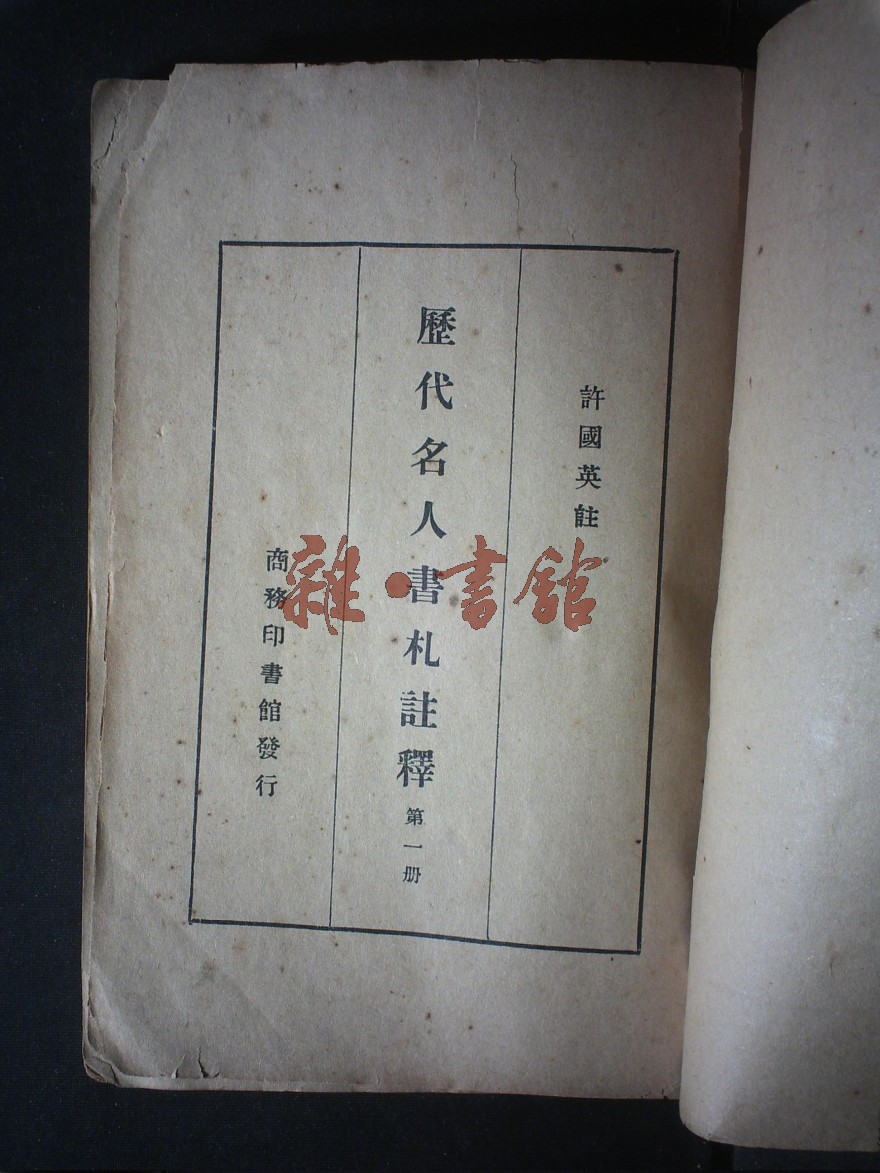 許國英註
歷代名人書札註釋 第一册
商務印書館發行
雜·書館